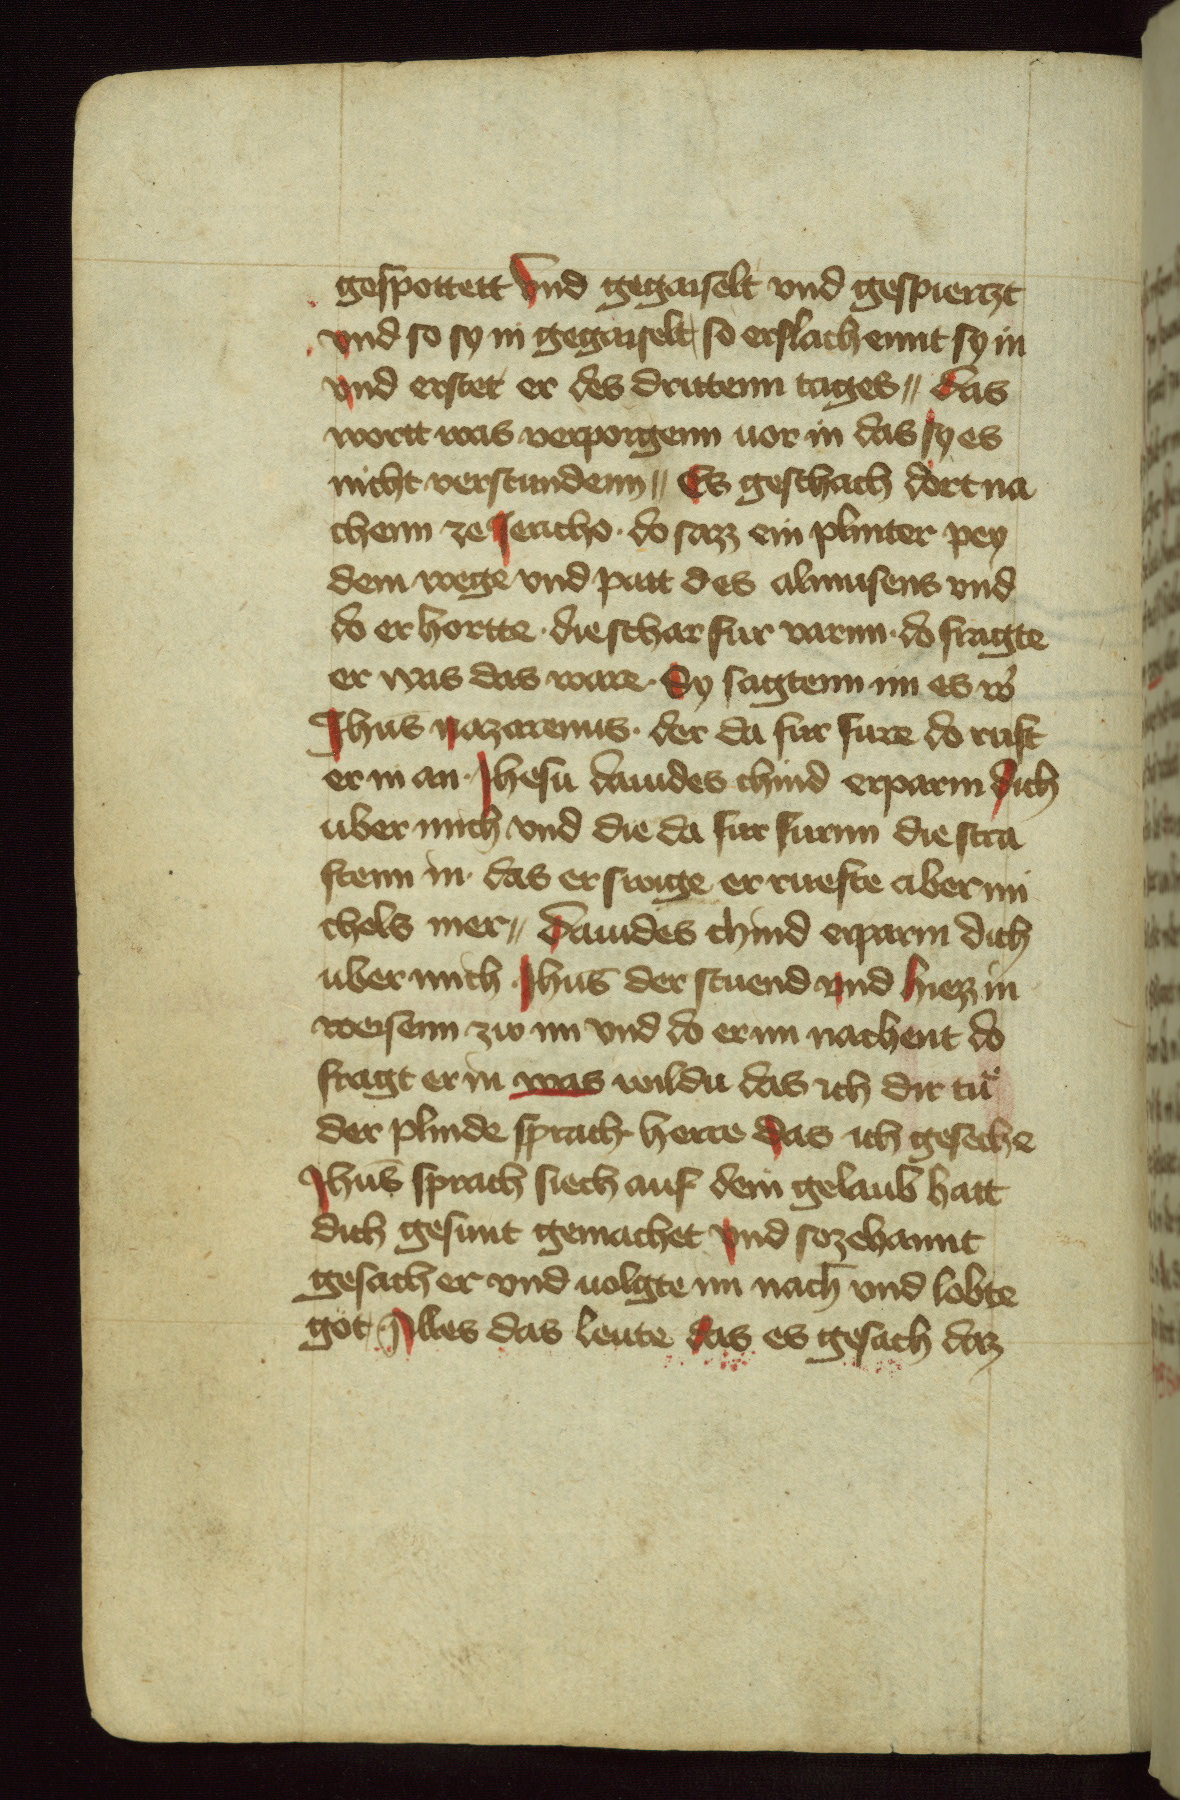 gespottett vnd gegaiselt vnd gespiertzt
vnd so sy in gegaiselt so erslachennt sy in
vnd erstet er des drittenn tages // das
wortt was verporgenn uor in das sy es
nicht verstundenn // Es geschach dort na
chenn ze Jericho · do sazz ein plinter pey
dem wege vnd patt des almusens vnd
do er hortte · die schar fur varnn · do fragte
er was das ware · Sy sagtenn im es w
Jhus nazarenus · der da fur fure do ruft
er in an · Jhesu dauides chind erparm dich
uber mich vnd die da fur furnn die stra
ftenn in · das er swige er rufte aber mi
chels mer // Dauides chind erparm dich
uber mich · Jhus der stuend vnd hiezz in
weisenn zw im vnd do er im nachent do
fragt er in was wildu das ich dir tu
der plinde sprach · herre das ich geseche
Jhus sprach siech auf dein gelaub hatt
dich gesunt gemachet vnd sozehannt
gesach er vnd uolgte im nach vnd lobte
got Alles das leute das es gesach daz